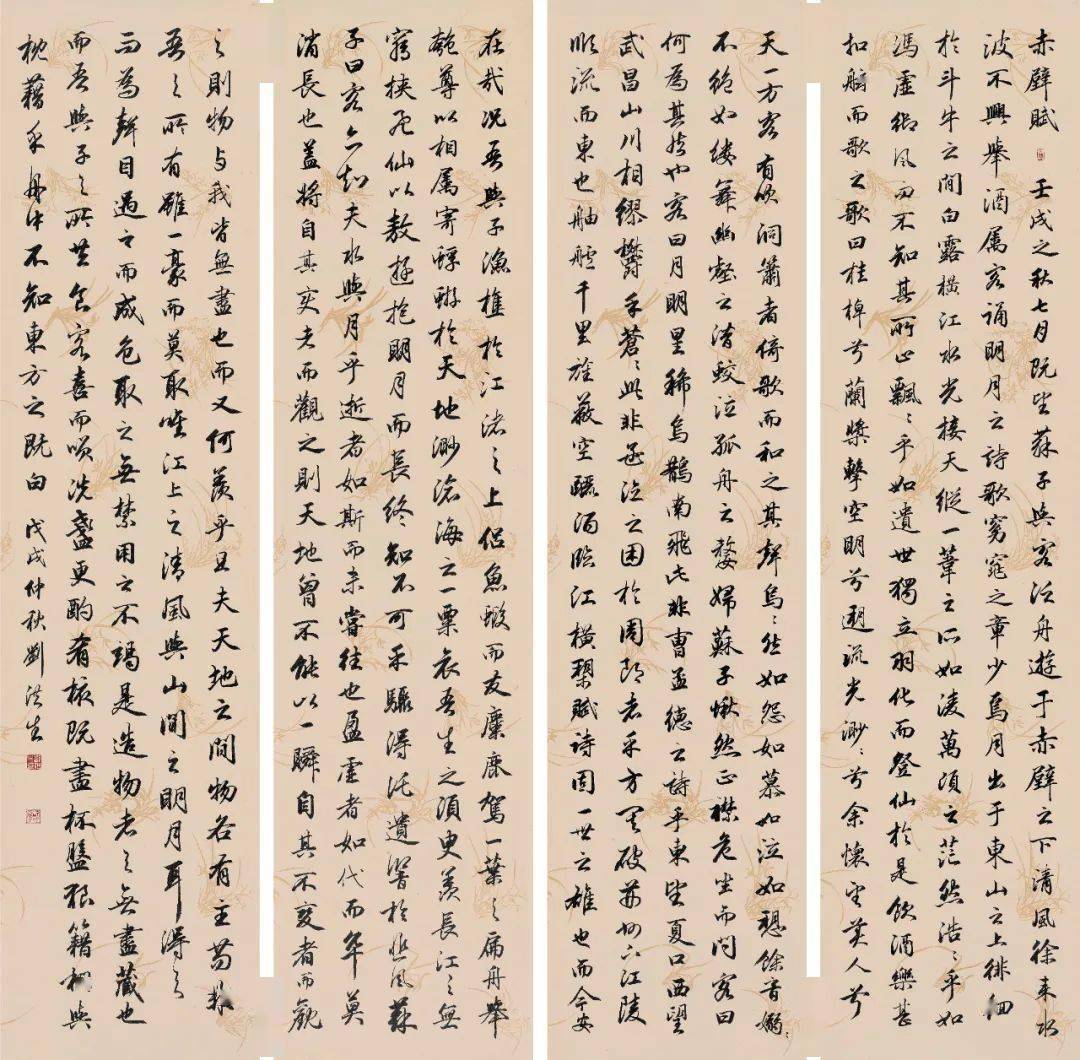 赤壁賦 壬戌之秋七月既望蘇子與客泛舟遊于赤壁之下清風徐來水
波不興舉酒屬客誦明月之詩歌窈窕之章少焉月出于東山之上徘徊
於斗牛之間白露橫江水光接天縱一葦之所如凌萬頃之茫然浩〻乎如
馮虛御風而不知其所止飄〻乎如遺世獨立羽化而登仙於是飲酒樂甚
扣舷而歌之歌曰桂棹兮蘭槳擊空明兮遡流光渺〻兮余懷望美人兮
天一方客有吹洞簫者倚歌而和之其聲烏〻然如怨如慕如泣如愬餘音嫋〻
不絕如縷舞幽壑之潛蛟泣孤舟之嫠婦蘇子愀然正襟危坐而問客曰
何為其然也客曰月明星稀烏鵲南飛此非曹孟德之詩乎東望夏口西望
武昌山川相繆鬱乎蒼〻此非孟德之困於周郎者乎方其破荊州下江陵
順流而東也舳艫千里旌蔽空釃酒臨江橫槊賦詩固一世之雄也而今安
在哉況吾與子漁樵於江渚之上侶魚蝦而友麋鹿駕一葉之扁舟舉
匏尊以相屬寄蜉蝣於天地渺滄海之一粟哀吾生之須臾羨長江之無
窮挾飛仙以敖遊抱明月而長終知不可乎驟得託遺響於悲風蘇
子曰客亦知夫水與月乎逝者如斯而未嘗往也盈虛者如代而卒莫
消長也蓋將自其變者而觀之則天地曾不能以一瞬自其不變者而觀
之則物与我皆無盡也而又何羨乎且夫天地之間物各有主苟非
吾之所有雖一豪而莫取唯江上之清風與山間之明月耳得之
而為聲目遇之而成色取之無禁用之不竭是造物者之無盡藏也
而吾與子之所共食客喜而笑洗盞更酌肴核既盡杯盤狼籍相與
枕藉乎舟中不知東方之既白 戊戌仲秋劉洪生